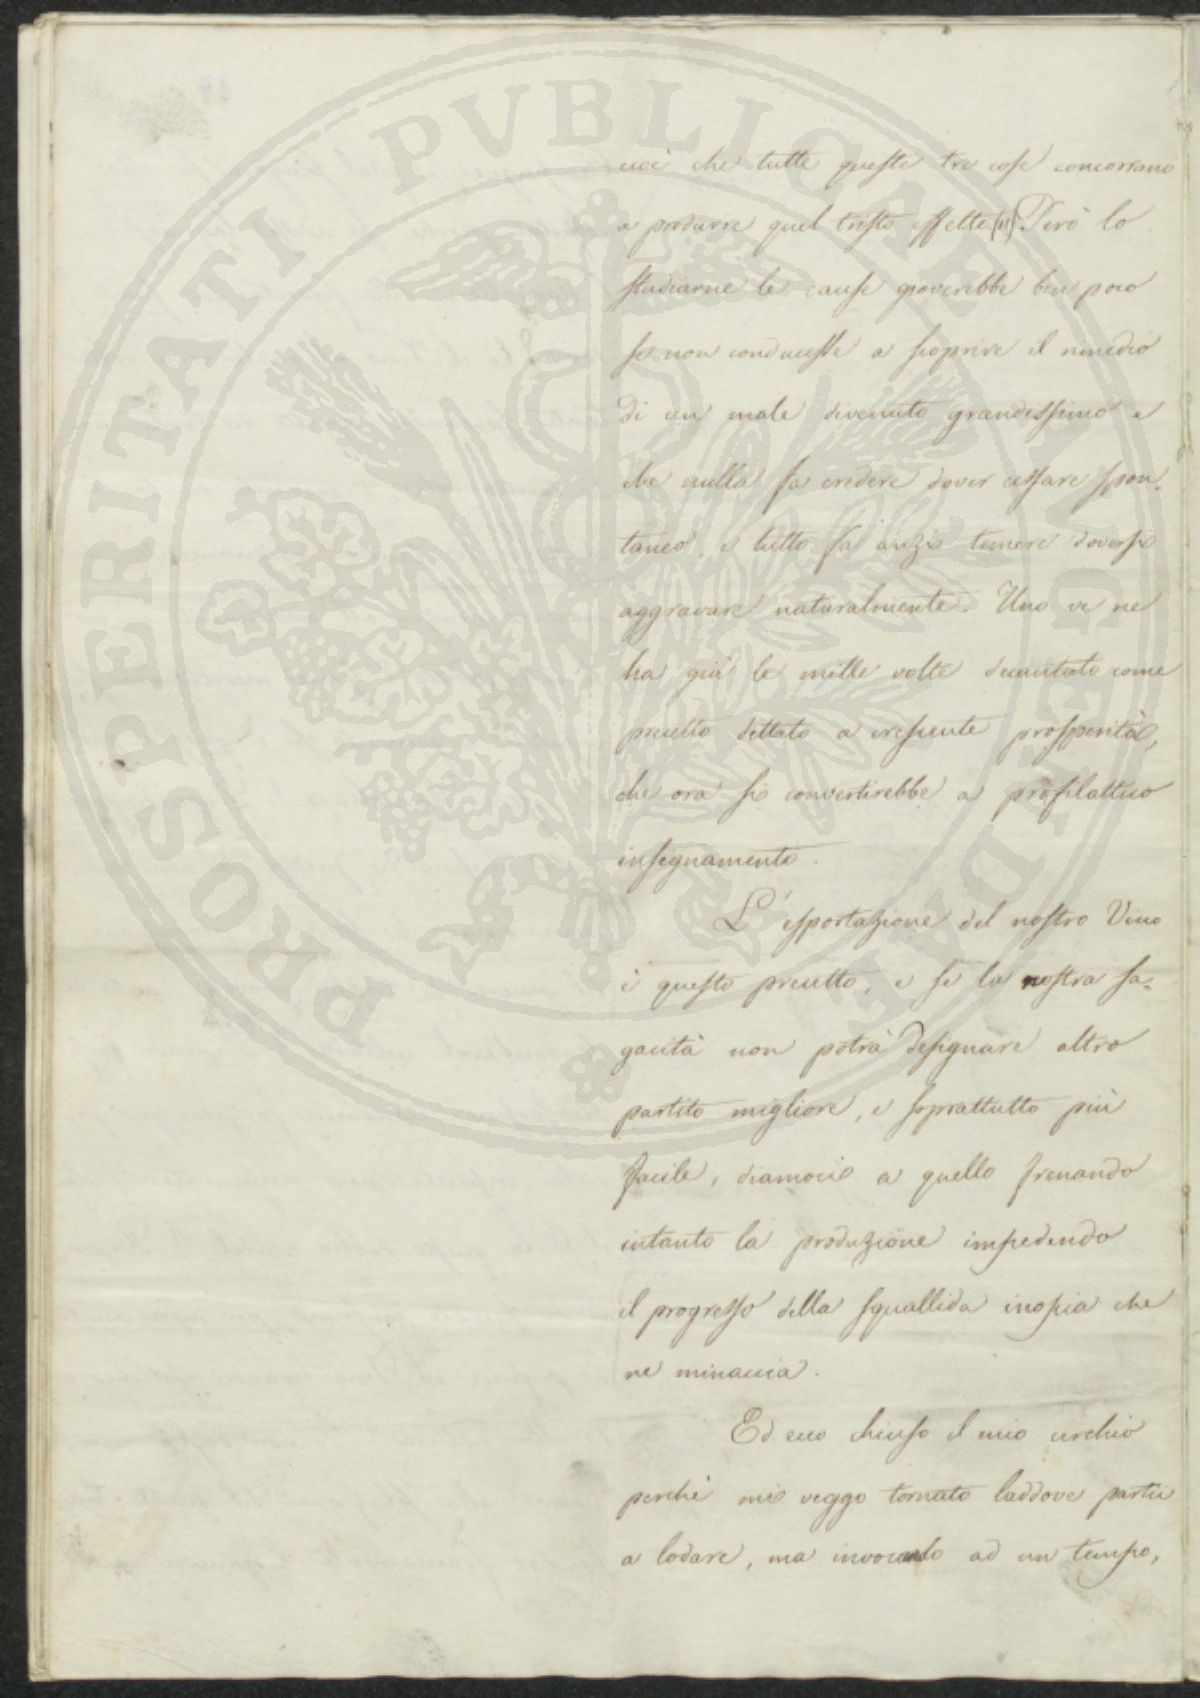 PROSPERITATI PVBLICAE AVGENDAE
cioè che tutte queste tre cose concorrano
a produrre quel tristo effetto. Però lo
studiarne le cause gioverebbe ben poco
se non conducesse a scoprire il rimedio
di un male divenuto grandissimo e
che nulla fa credere dover cessare spon-
taneo, e tutto fa anzi temere doversi
aggravare naturalmente. Uno ve ne
ha già le mille volte decantato come
precetto dettato a crescente prosperità,
che ora si convertirebbe a profilattico
insegnamento.
L'esportazione del nostro Vino
è questo precetto, e se la nostra sa-
gacità non potrà designare altro
partito migliore, e soprattutto più
facile, diamoci a quello frenando
intanto la produzione impedendo
il progresso della squallida inopia che
ne minaccia.
Ed ecco chiuso il mio cerchio
perchè mi veggo tornato laddove partii
a lodare, ma invocando ad un tempo,